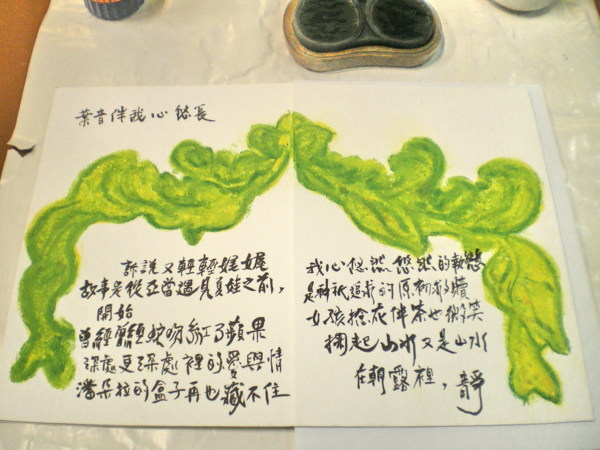 葉音伴我心悠長
訴說又輕輕娓娓
故事是從亞當遇見夏娃之前，
開始
曾經蛇吻紅了蘋果
深處更深處裡的愛與情
潘朵拉的盒子再也藏不住
我心悠然悠然的
是神祇追尋的原初
女孩捻花伴茶也微笑
掬起山水又是山水
在朝露裡，靜